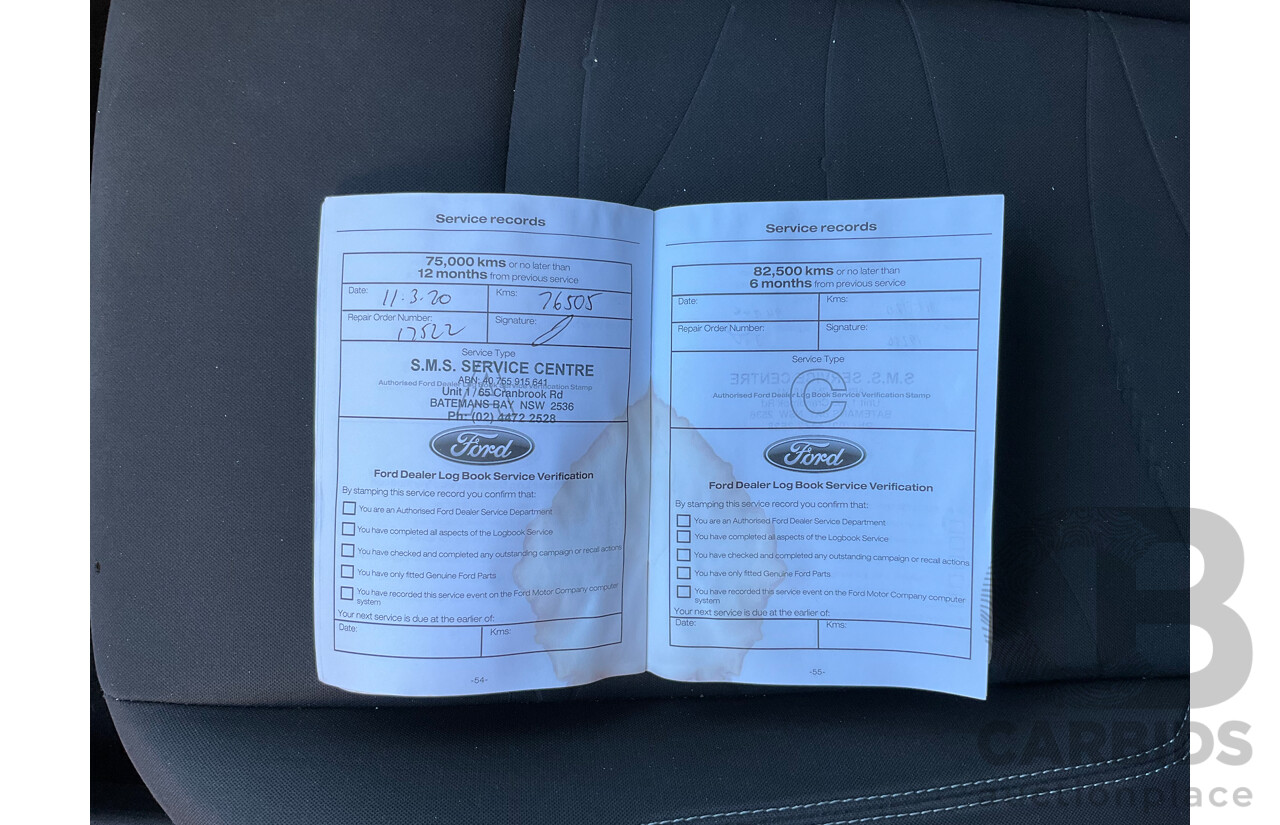 Service records
75,000 kms or no later than
12 months from previous service
Date: 11.3.20
Kms: 76505
Repair Order Number: 17522
Signature:
Service Type
S.M.S. SERVICE CENTRE
Authorised Ford Dealer Log Book Service Verification Stamp
ABN: 40 755 915 641
Unit 1 / 65 Cranbrook Rd
BATEMANS BAY NSW 2536
Ph: (02) 4472 2528
Ford
Ford Dealer Log Book Service Verification
By stamping this service record you confirm that:
You are an Authorised Ford Dealer Service Department
You have completed all aspects of the Logbook Service
You have checked and completed any outstanding campaign or recall actions
You have only fitted Genuine Ford Parts
You have recorded this service event on the Ford Motor Company computer
system
Your next service is due at the earlier of:
Date:
Kms:
-54-
Service records
82,500 kms or no later than
6 months from previous service
Date:
Kms:
Repair Order Number:
Signature:
Service Type
C
Authorised Ford Dealer Log Book Service Verification Stamp
Ford
Ford Dealer Log Book Service Verification
By stamping this service record you confirm that:
You are an Authorised Ford Dealer Service Department
You have completed all aspects of the Logbook Service
You have checked and completed any outstanding campaign or recall actions
You have only fitted Genuine Ford Parts
You have recorded this service event on the Ford Motor Company computer
system
Your next service is due at the earlier of:
Date:
Kms:
-55-
CB
CARBIDS
auctionplace